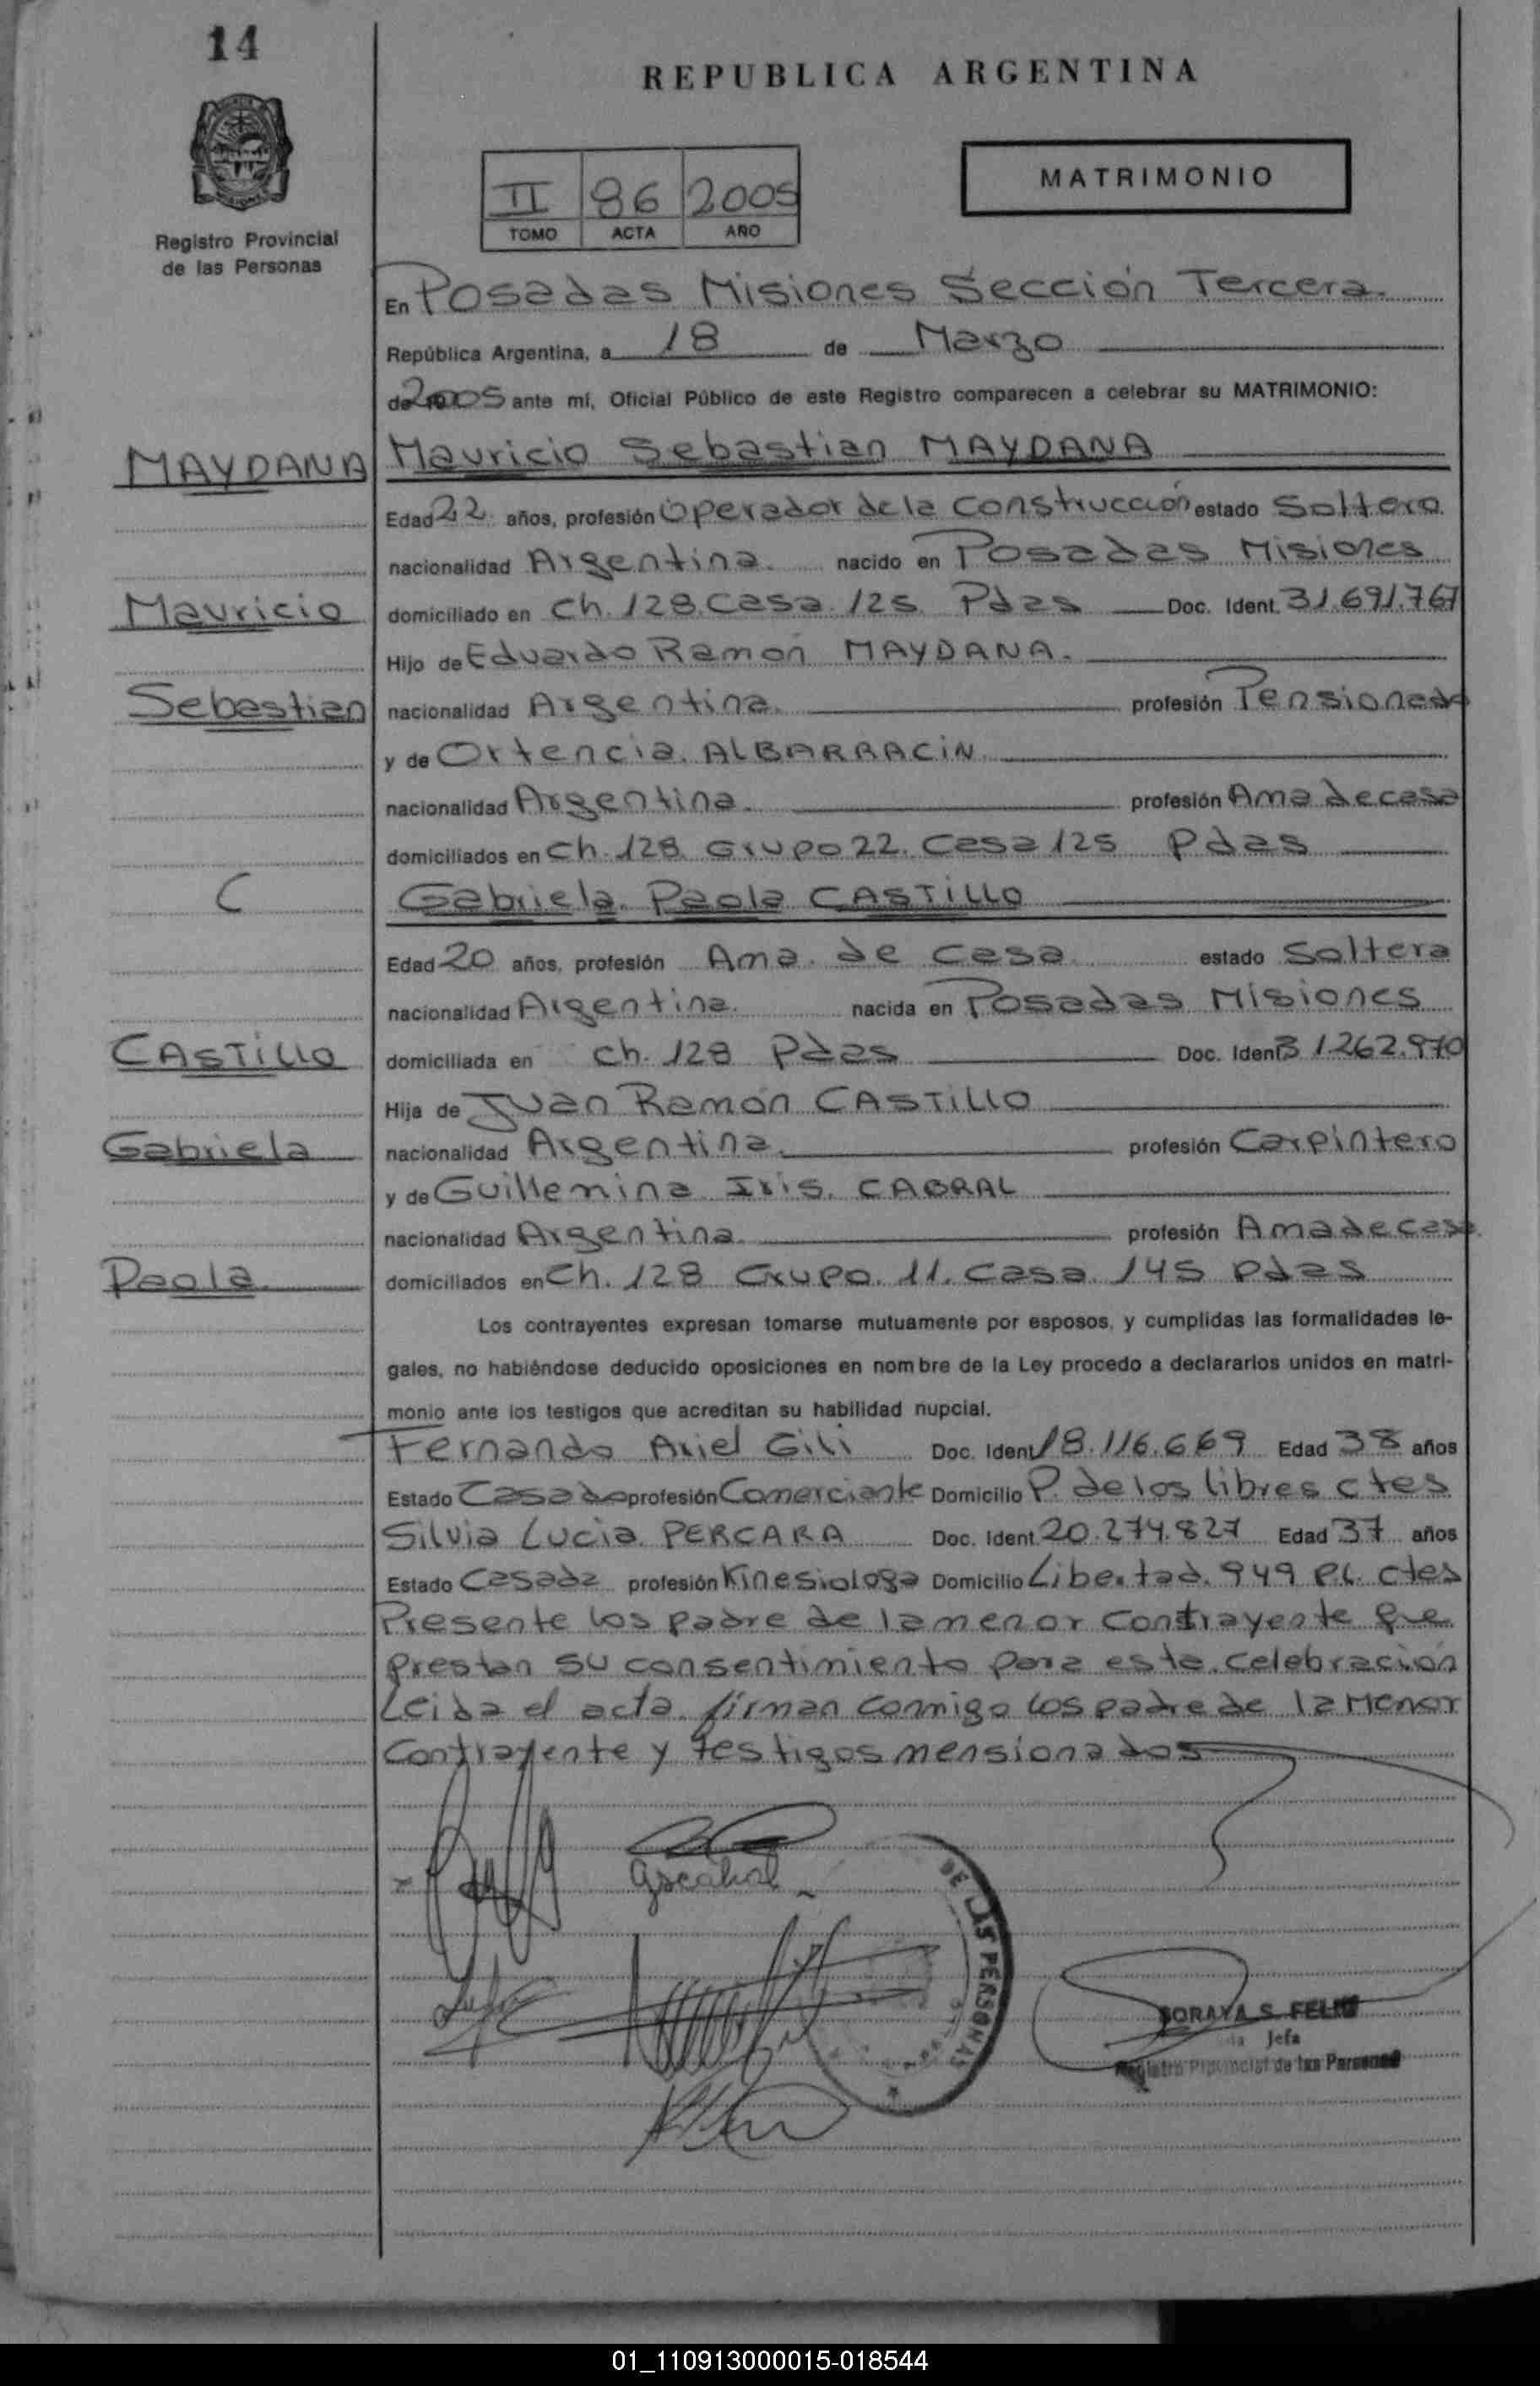 14
REPUBLICA ARGENTINA
MATRIMONIO
II 86 2005
TOMO ACTA AÑO
Registro Provincial
de las Personas
En Posadas Misiones Sección Tercera.
República Argentina, a 18 de Marzo
de 2005 ante mí, Oficial Público de este Registro comparecen a celebrar su MATRIMONIO:
MAYDANA
Mauricio Sebastian MAYDANA
Edad 22 años, profesión Operador de la Construcción estado Soltero
nacionalidad Argentina. nacido en Posadas Misiones
Mauricio
domiciliado en Ch. 128. Casa. 125. Pdas Doc. Ident. 31.691.767
Hijo de Eduardo Ramón MAYDANA.
Sebastian
nacionalidad Argentina. profesión Pensionado
y de Ortencia. ALBARRACIN
nacionalidad Argentina. profesión Ama de casa
domiciliados en Ch. 128 Grupo 22. Casa 125 Pdas
C
Gabriela. Paola CASTILLO
Edad 20 años, profesión Ama. de Casa estado Soltera
nacionalidad Argentina. nacida en Posadas Misiones
CASTILLO
domiciliada en Ch. 128 Pdas Doc. Ident 31.262.970
Hija de Juan Ramón CASTILLO
Gabriela
nacionalidad Argentina. profesión Carpintero
y de Guillemina Iris. CABRAL
nacionalidad Argentina profesión Ama de casa.
Paola
domiciliados en Ch. 128 Grupo. 11. Casa. 145 Pdas
Los contrayentes expresan tomarse mutuamente por esposos, y cumplidas las formalidades le-
gales, no habiéndose deducido oposiciones en nombre de la Ley procedo a declararlos unidos en matri-
monio ante los testigos que acreditan su habilidad nupcial.
Fernando Ariel Gili Doc. Ident 18.116.669 Edad 38 años
Estado Casado profesión Comerciante Domicilio P. de los libres ctes
Silvia Lucia. PERCARA Doc. Ident. 20.274.827 Edad 37 años
Estado Casada profesión Kinesiologa Domicilio Libertad. 949 P.L. ctes
Presente los padre de la menor Contrayente que
prestan su consentimiento para esta. celebración
Leida el acta. firman conmigo los padre de la Menor
Contrayente y testigos mensionados
DE LAS PERSONAS
SORAYA S. FELIU
Jefa
Registro Provincial de las Personas
01_110913000015-018544